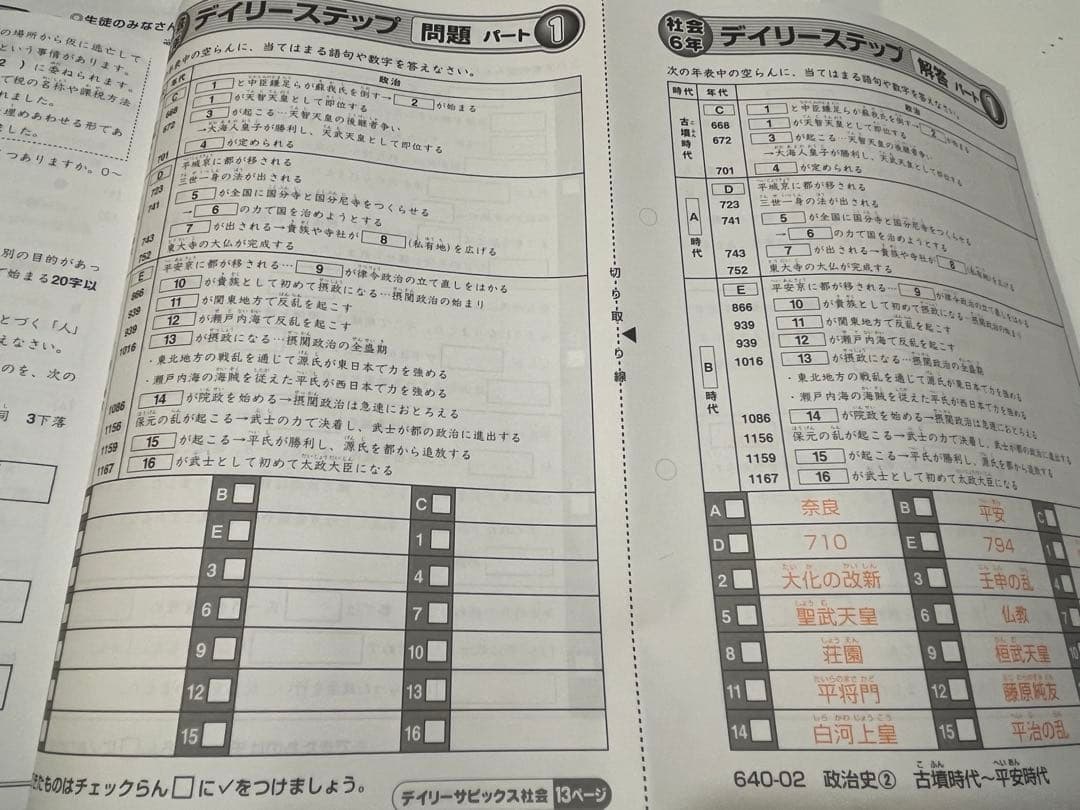 ◎生徒のみなさん
の場所から仮に逃亡して
という事情があります。
2 ）に委ねられます。
て税の名称や課税方法
れました。
埋めあわせる形であ
ました。
つありますか。0～
別の目的があっ
て始まる 20字以
とづく「人」
えなさい。
のを、次の
同 3下落
デイリーステップ 問題 パート 1
次の年表中の空らんに、当てはまる語句や数字を答えなさい。
年代 政治
C 1 と中臣鎌足らが蘇我氏を倒す→ 2 が始まる
668 1 が天智天皇として即位する
672 3 が起こる…天智天皇の後継者争い
→大海人皇子が勝利し、天武天皇として即位する
701 4 が定められる
D 平城京に都が移される
723 三世一身の法が出される
741 5 が全国に国分寺と国分尼寺をつくらせる
→ 6 の力で国を治めようとする
743 7 が出される→貴族や寺社が 8 (私有地)を広げる
752 東大寺の大仏が完成する
E 平安京に都が移される… 9 が律令政治の立て直しをはかる
866 10 が貴族として初めて摂政になる…摂関政治の始まり
939 11 が関東地方で反乱を起こす
939 12 が瀬戸内海で反乱を起こす
1016 13 が摂政になる…摂関政治の全盛期
・東北地方の戦乱を通じて源氏が東日本で力を強める
・瀬戸内海の海賊を従えた平氏が西日本で力を強める
1086 14 が院政を始める→摂関政治は急速におとろえる
1156 保元の乱が起こる→武士の力で決着し、武士が都の政治に進出する
1159 15 が起こる→平氏が勝利し、源氏を都から追放する
1167 16 が武士として初めて太政大臣になる
B C
E 1
3 4
6 7
9 10
12 13
15 16
きたものはチェックらん□に✓をつけましょう。
デイリーサピックス社会 13ページ
切り取り線
社会 6年 デイリーステップ 解答 パート 1
次の年表中の空らんに、当てはまる語句や数字を答えなさい。
時代 年代 政治
古墳時代
C 1 と中臣鎌足らが蘇我氏を倒す→ 2 が始まる
668 1 が天智天皇として即位する
672 3 が起こる…天智天皇の後継者争い
→大海人皇子が勝利し、天武天皇として即位する
701 4 が定められる
A 時代
D 平城京に都が移される
723 三世一身の法が出される
741 5 が全国に国分寺と国分尼寺をつくらせる
→ 6 の力で国を治めようとする
743 7 が出される→貴族や寺社が 8 (私有地)を広げる
752 東大寺の大仏が完成する
B 時代
E 平安京に都が移される… 9 が律令政治の立て直しをはかる
866 10 が貴族として初めて摂政になる…摂関政治の始まり
939 11 が関東地方で反乱を起こす
939 12 が瀬戸内海で反乱を起こす
1016 13 が摂政になる…摂関政治の全盛期
・東北地方の戦乱を通じて源氏が東日本で力を強める
・瀬戸内海の海賊を従えた平氏が西日本で力を強める
1086 14 が院政を始める→摂関政治は急速におとろえる
1156 保元の乱が起こる→武士の力で決着し、武士が都の政治に進出する
1159 15 が起こる→平氏が勝利し、源氏を都から追放する
1167 16 が武士として初めて太政大臣になる
A 奈良 B 平安 C
D 710 E 794 1
2 大化の改新 3 壬申の乱 4
5 聖武天皇 6 仏教 7
8 荘園 9 桓武天皇 10
11 平将門 12 藤原純友
14 白河上皇 15 平治の乱
640-02 政治史② 古墳時代～平安時代